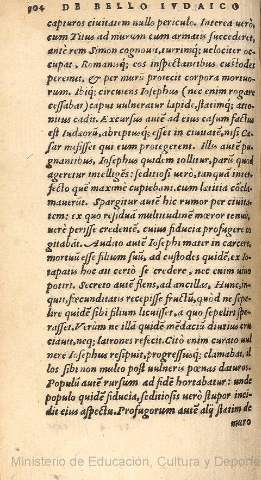 504 DE BELLO IVDAICO
capturos ciuitatem nullo periculo. Interea verò,
cum Titus ad murum cum armatis succederet,
antè rem Simon cognouit, turrimq; velociter oc-
cupat, Romanosq; eos inspectantibus custodes
peremit, & per muri protecit corpora mortuo-
rum. Ibiq; circuiens Iosephus (nec enim rogare
cessabat) caput vulneratur lapide, statimq; atto-
nitus cadit. Excursus autē ad eius casum factus
est Iudaeorū, abreptusq; esset in ciuitatē, nisi Cæ-
sar misisset qui eum protegerent. Illis autē pu-
gnantibus, Iosephus quidem tollitur, parū quod
ageretur intelligēs: seditiosi verò, tanquā inter-
fecto quē maximè cupiebant, cum lætitia cōcla-
mauerūt. Spargitur autē hic rumor per ciuita-
tem: ex quo residuā multitudinē mœror tenuit,
verè perisse credentē, cuius fiducia profugere co-
gitabāt. Audito autē Iosephi mater in carcere,
mortuū esse filium suū, ad custodes quidē, ex Io-
tapatis hoc ait certò se credere, nec enim viuo
potiri. Secretò autē flens, ad ancillas, Hunc, in-
quit, fœcunditatis recepisse fructū, quòd ne sepe-
lire quidē sibi filium licuisset, à quo sepeliri spe-
rasset. Verùm ne illā quidē mēdaciū diutius cru-
ciauit, neq; latrones refecit. Citò enim curato vul-
nere Iosephus resipuit, progressusq; clamabat, il-
los sibi non multo pòst vulneris pœnas daturos.
Populū autē rursum ad fidē hortabatur: unde
populo quidē fiducia, seditiosis verò stupor inci-
dit eius aspectu. Profugorum autē alij statim de
muro
Ministerio de Educación, Cultura y Deporte